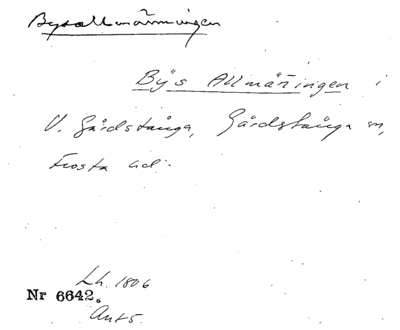 Bysallmänningen
Bÿs Allmäñingen i
V. Gårdstånga, Gårdstånga sn,
Frosta hd.
Lh. 1806
Nr 6642.
Ant 5.